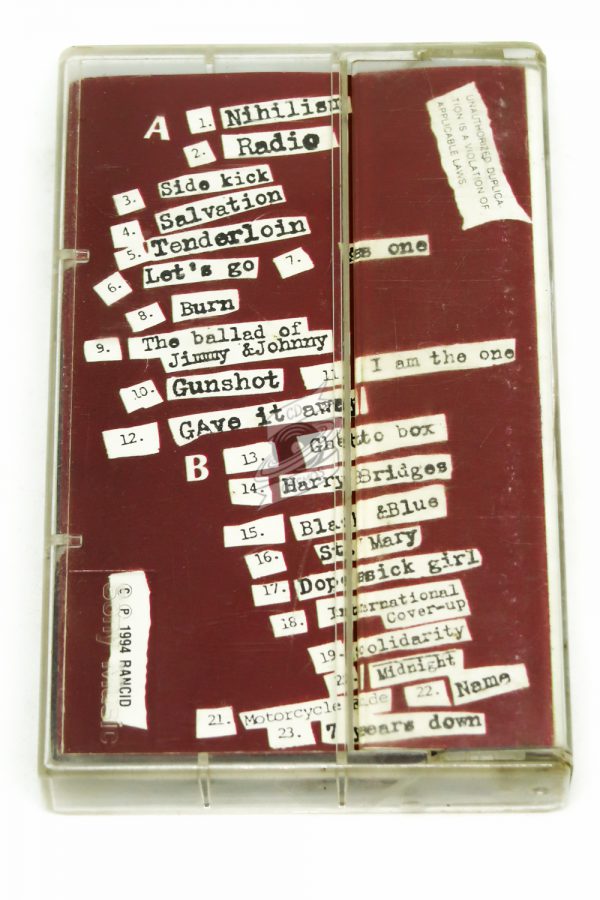 A
1. Nihilism
2. Radio
3. Side kick
4. Salvation
5. Tenderloin
6. Let's go
7. as one
8. Burn
9. The ballad of
Jimmy &Johnny
10. Gunshot
11. I am the one
12. GAve it away
B
13. Ghetto box
14. Harry Bridges
15. Black &Blue
16. St. Mary
17. Dopesick girl
18. International
Cover-up
19. Solidarity
20. Midnight
21. Motorcycle Ride
22. Name
23. 7 years down
UNAUTHORIZED DUPLICA-
TION IS A VIOLATION OF
APPLICABLE LAWS
C P 1994 RANCID
Sony Music